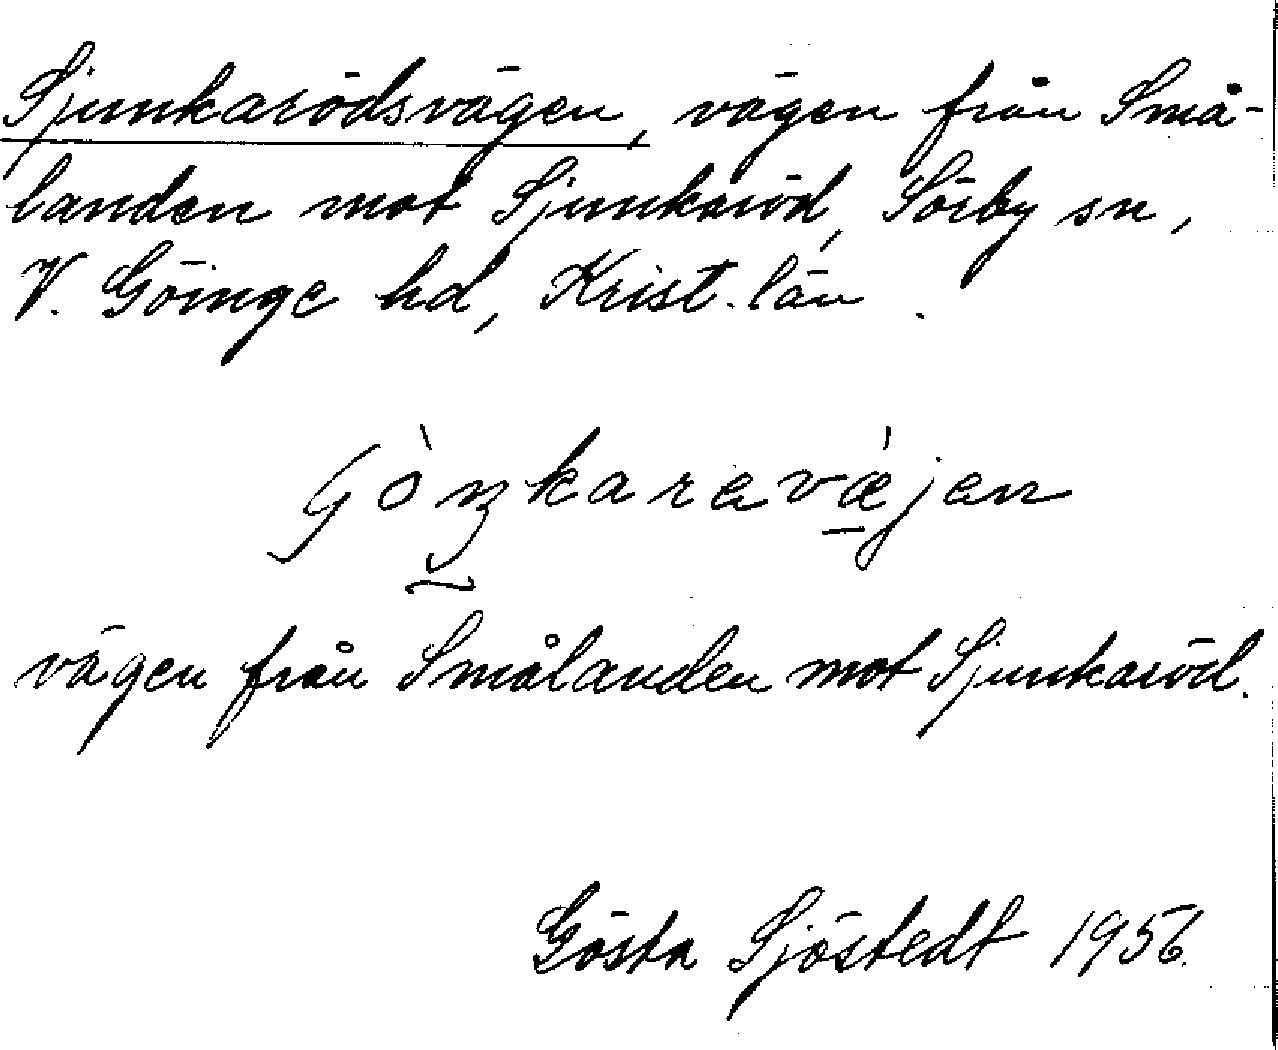 Sjunkarödsvägen, vägen från Små-
landen mot Sjunkaröd, Sörby sn,
V. Göinge hd, Krist. län.
vägen från Smålanden mot Sjunkaröd.
Gösta Sjöstedt 1956.